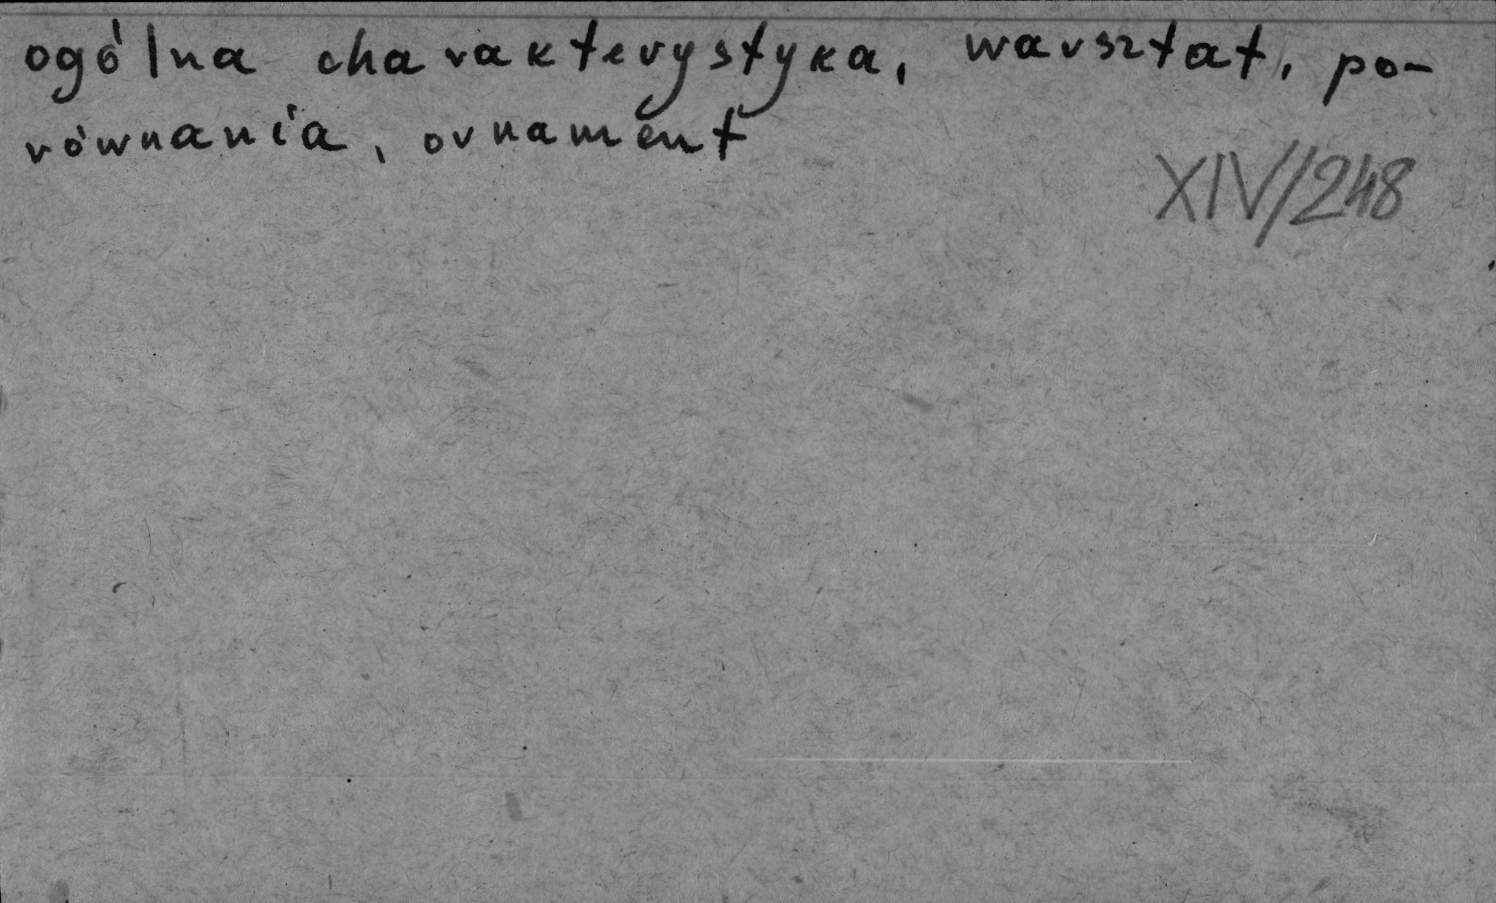 ogólna charakterystyka, warsztat, po-
równania, ornament
XIV/248